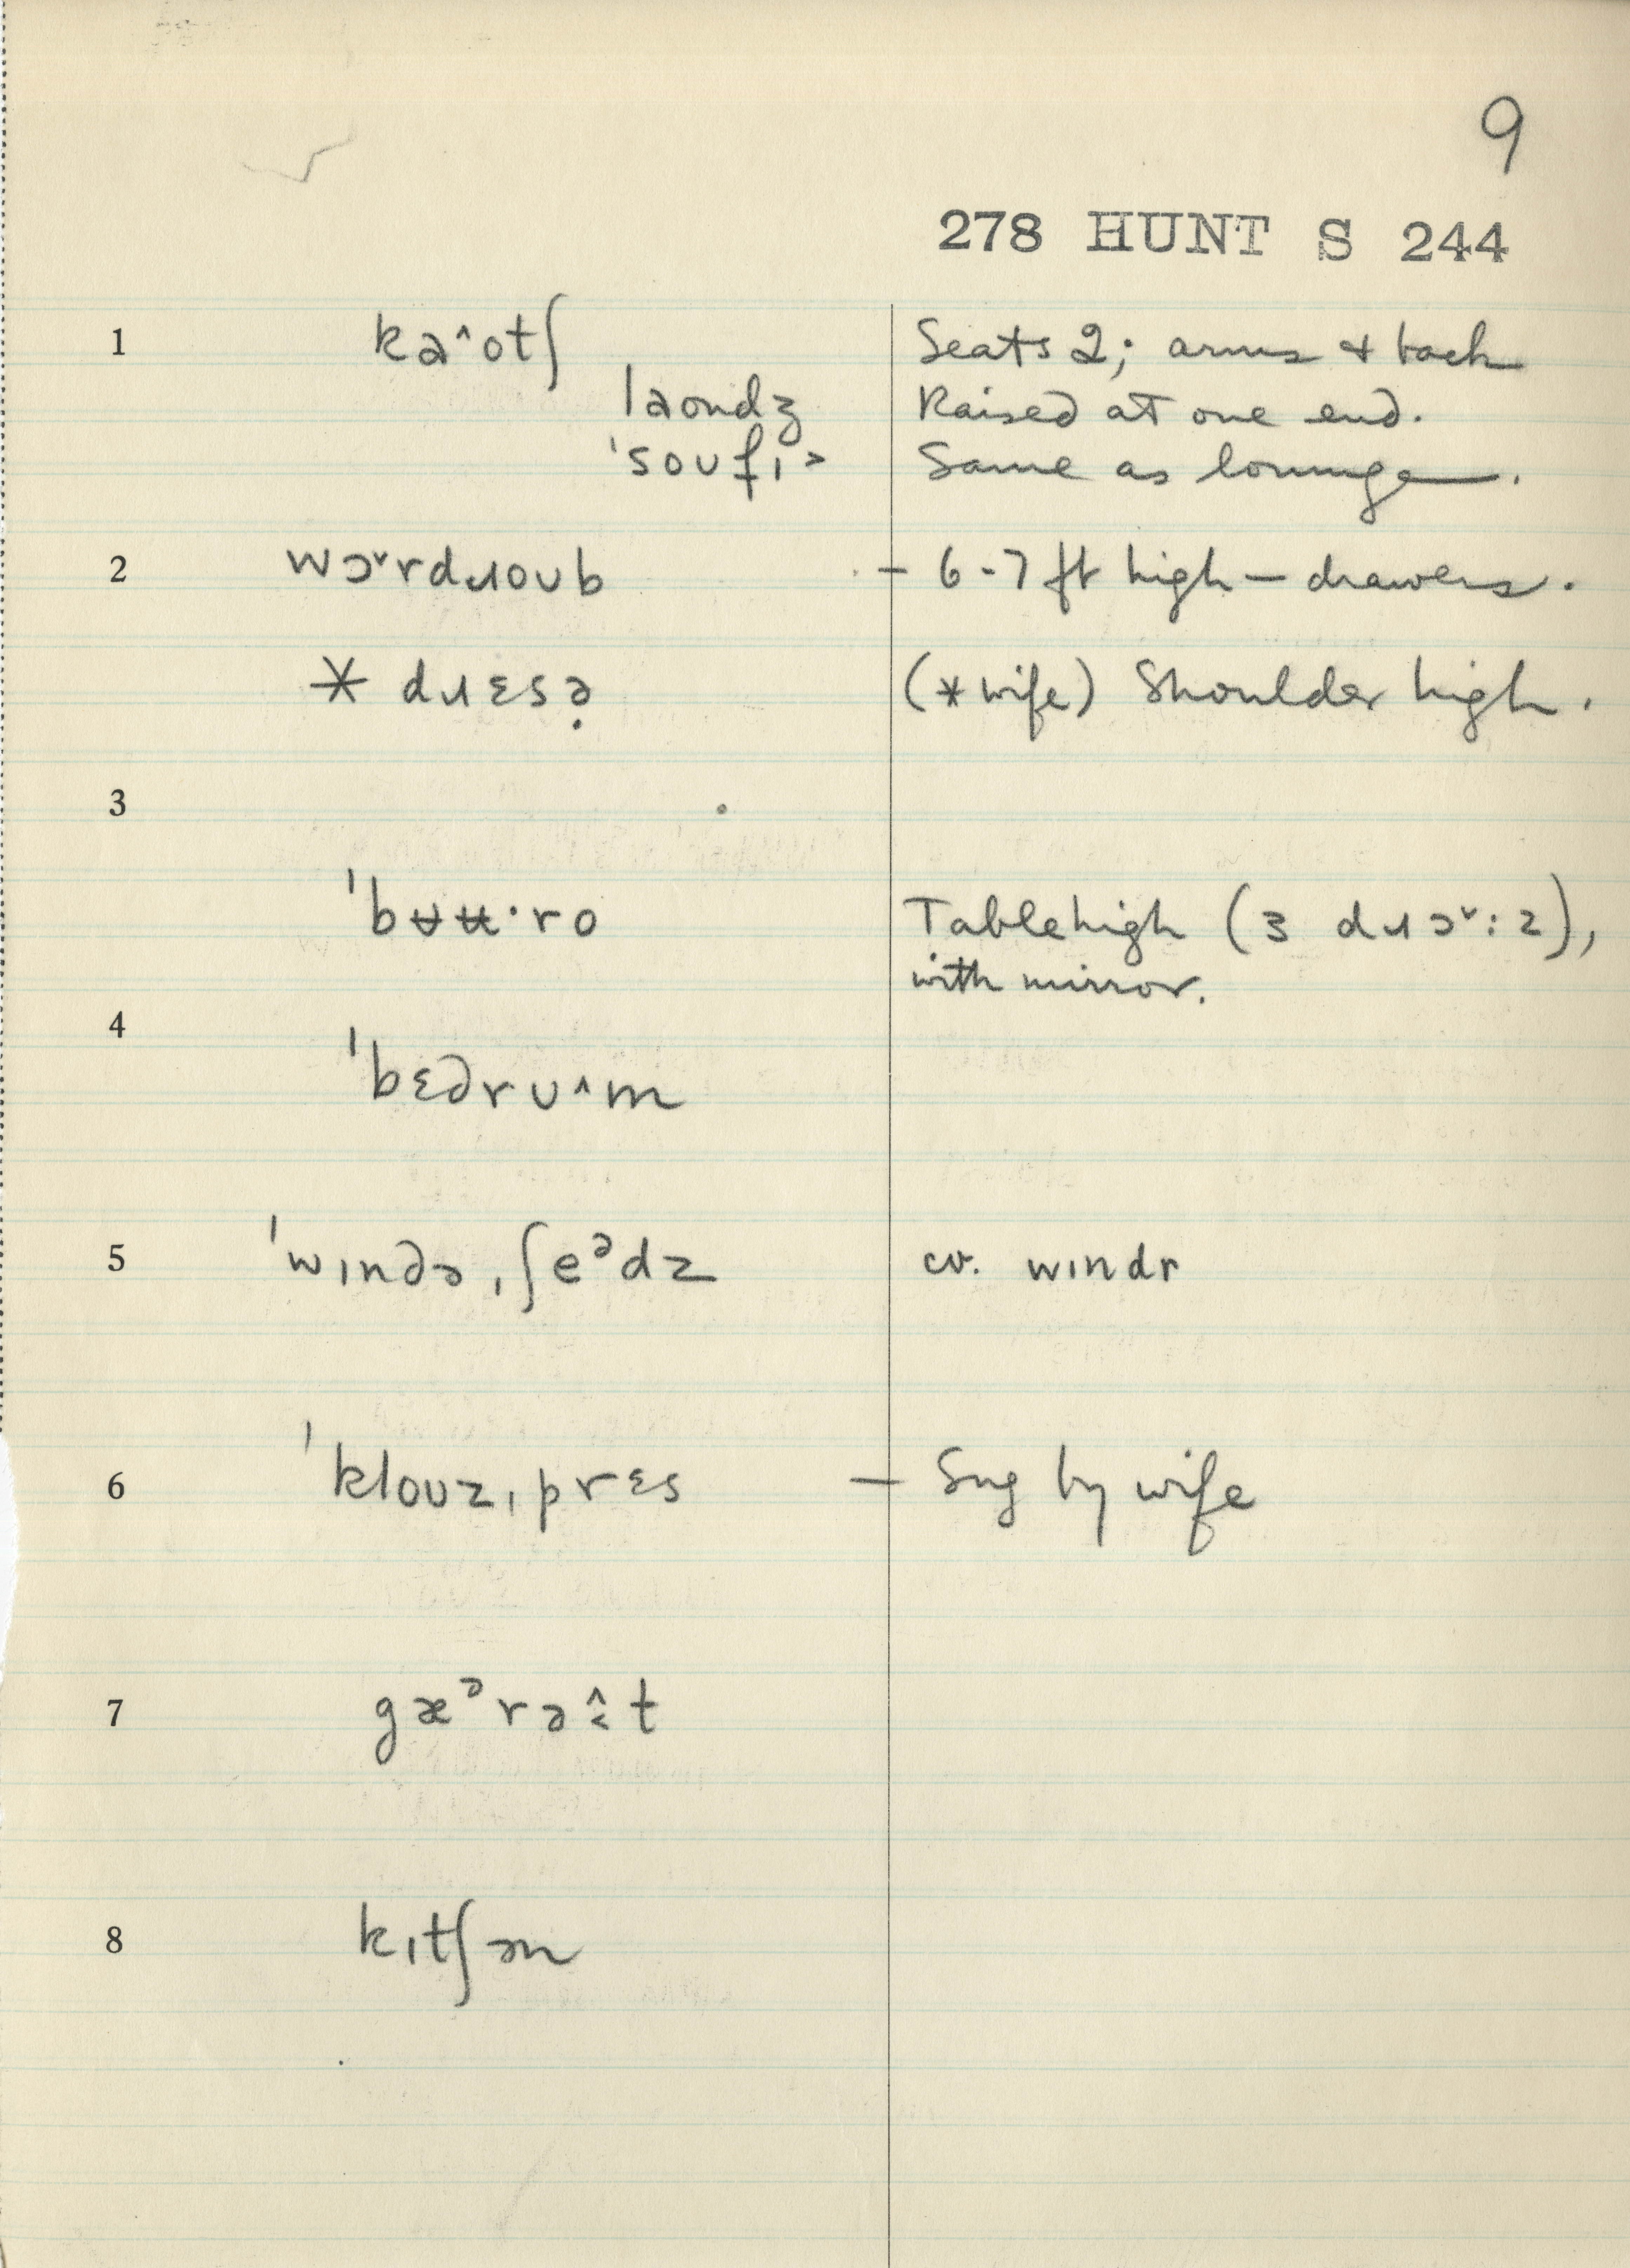 9
278 HUNT S 244
1 kaˆotʃ Seats 2; arms & back
laondʒ Raised at one end.
ˈsoufɪ> Same as lounge.
2 wɔˇrdɹoub – 6-7 ft high – drawers.
* dɹɛsə̣ (*wife) Shoulder high.
3
ˈbʉʉ·ro Tablehigh (3 dɹɔˇ:z),
with mirror.
4
ˈbɛdruˆm
5 ˈwɪndə ˌʃeᵊdz cv. wɪndr
6 ˈklouzˌprɛs – Sug by wife
7 gæᵊrət
8 kɪtʃən